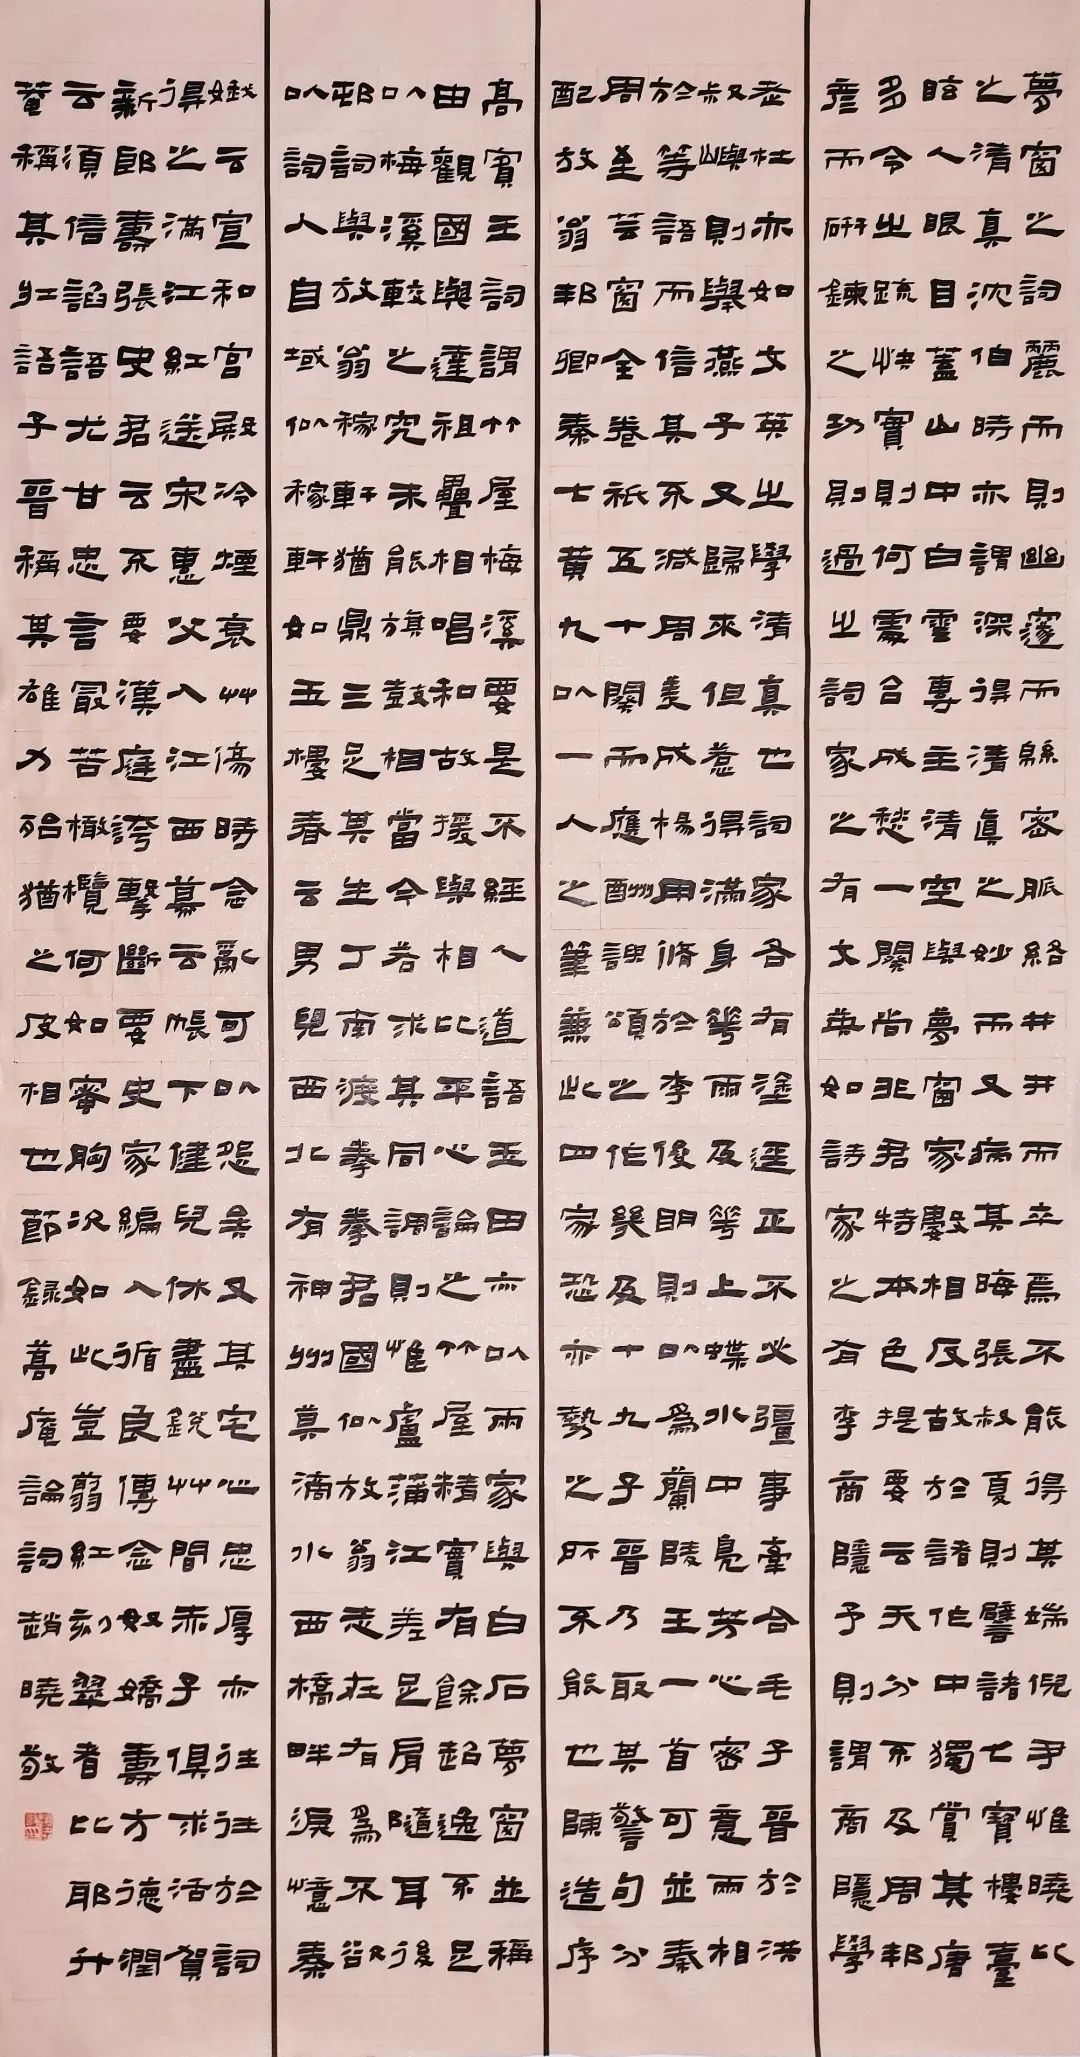 夢窗之詞麗而則幽邃而緜密脈絡井井而卒焉不能得其端倪尹惟曉比
之清真沈伯時亦謂深得清真之妙而又病其晦張叔夏則譬諸七寶樓臺
眩人眼目蓋山中白雲專主清空與夢窗家數相反故於諸作中獨賞其唐
多令之疏快實則何處合成愁一闋尚非君特本色提要云天分不及周邦
彥而研鍊之功則過之詞家之有文英如詩家之有李商隱予則謂商隱學
老杜亦如文英之學清真也詞家各有塗逕正不必彊事牽合毛子晉於洪
叔嶼則舉燕子又歸來但惹得滿身花雨及花上蝶水中鳧芳心密意兩相
於等語而信其不減周美成楊用修於李俊明則以為蘭陵王一首可並秦
周至芸窗全卷祇五十闋而應酬諛頌之作幾及十九子晉乃取其警句分
配放翁邦卿秦七黃九以一人之筆兼此四家恐亦勢之所不能也陳造序
高賓王詞謂竹屋梅溪要是不經人道語玉田亦以兩家與白石夢窗並稱
由觀國與達祖疊相唱和故援與相比平心論之竹屋精實有餘超逸不足
以梅溪較之究未能旗鼓相當今若求其同調則惟盧蒲江差足肩隨耳後
邨詞與放翁稼軒猶鼎三足其生丁南渡拳拳君國似放翁志在有為不欲
以詞人自域似稼軒如玉樓春云男兒西北有神州莫滴水西橋畔淚憶秦
娥云宣和宮殿冷煙衰艸傷時念亂可以怨矣又其宅心忠厚亦往往於詞
得之滿江紅送宋惠父入江西幕云帳下健兒休盡銳艸間赤子俱求活賀
新郎壽張史君云不要漢庭誇擊斷要史家編入循良傳念奴嬌壽方德潤
云須信諂語尤甘忠言最苦橄欖何如蜜胸次如此豈翦紅刻翠者比耶升
菴稱其壯語子晉稱其雄力殆猶之皮相也節錄蒿庵論詞趙曉敬